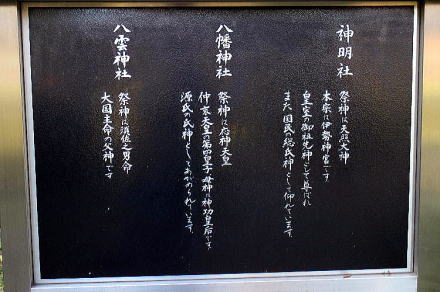 神明社
祭神は天照大神
本宗は伊勢神宮です
皇室の御祖先神として尊ばれ
また国民の総氏神として仰れています。
八幡神社
祭神は応神天皇
仲哀天皇の第四皇子母神は神功皇后です。
源氏の氏神としてあがめられています。
八雲神社
祭神は須佐之男命
大国主命の父神です